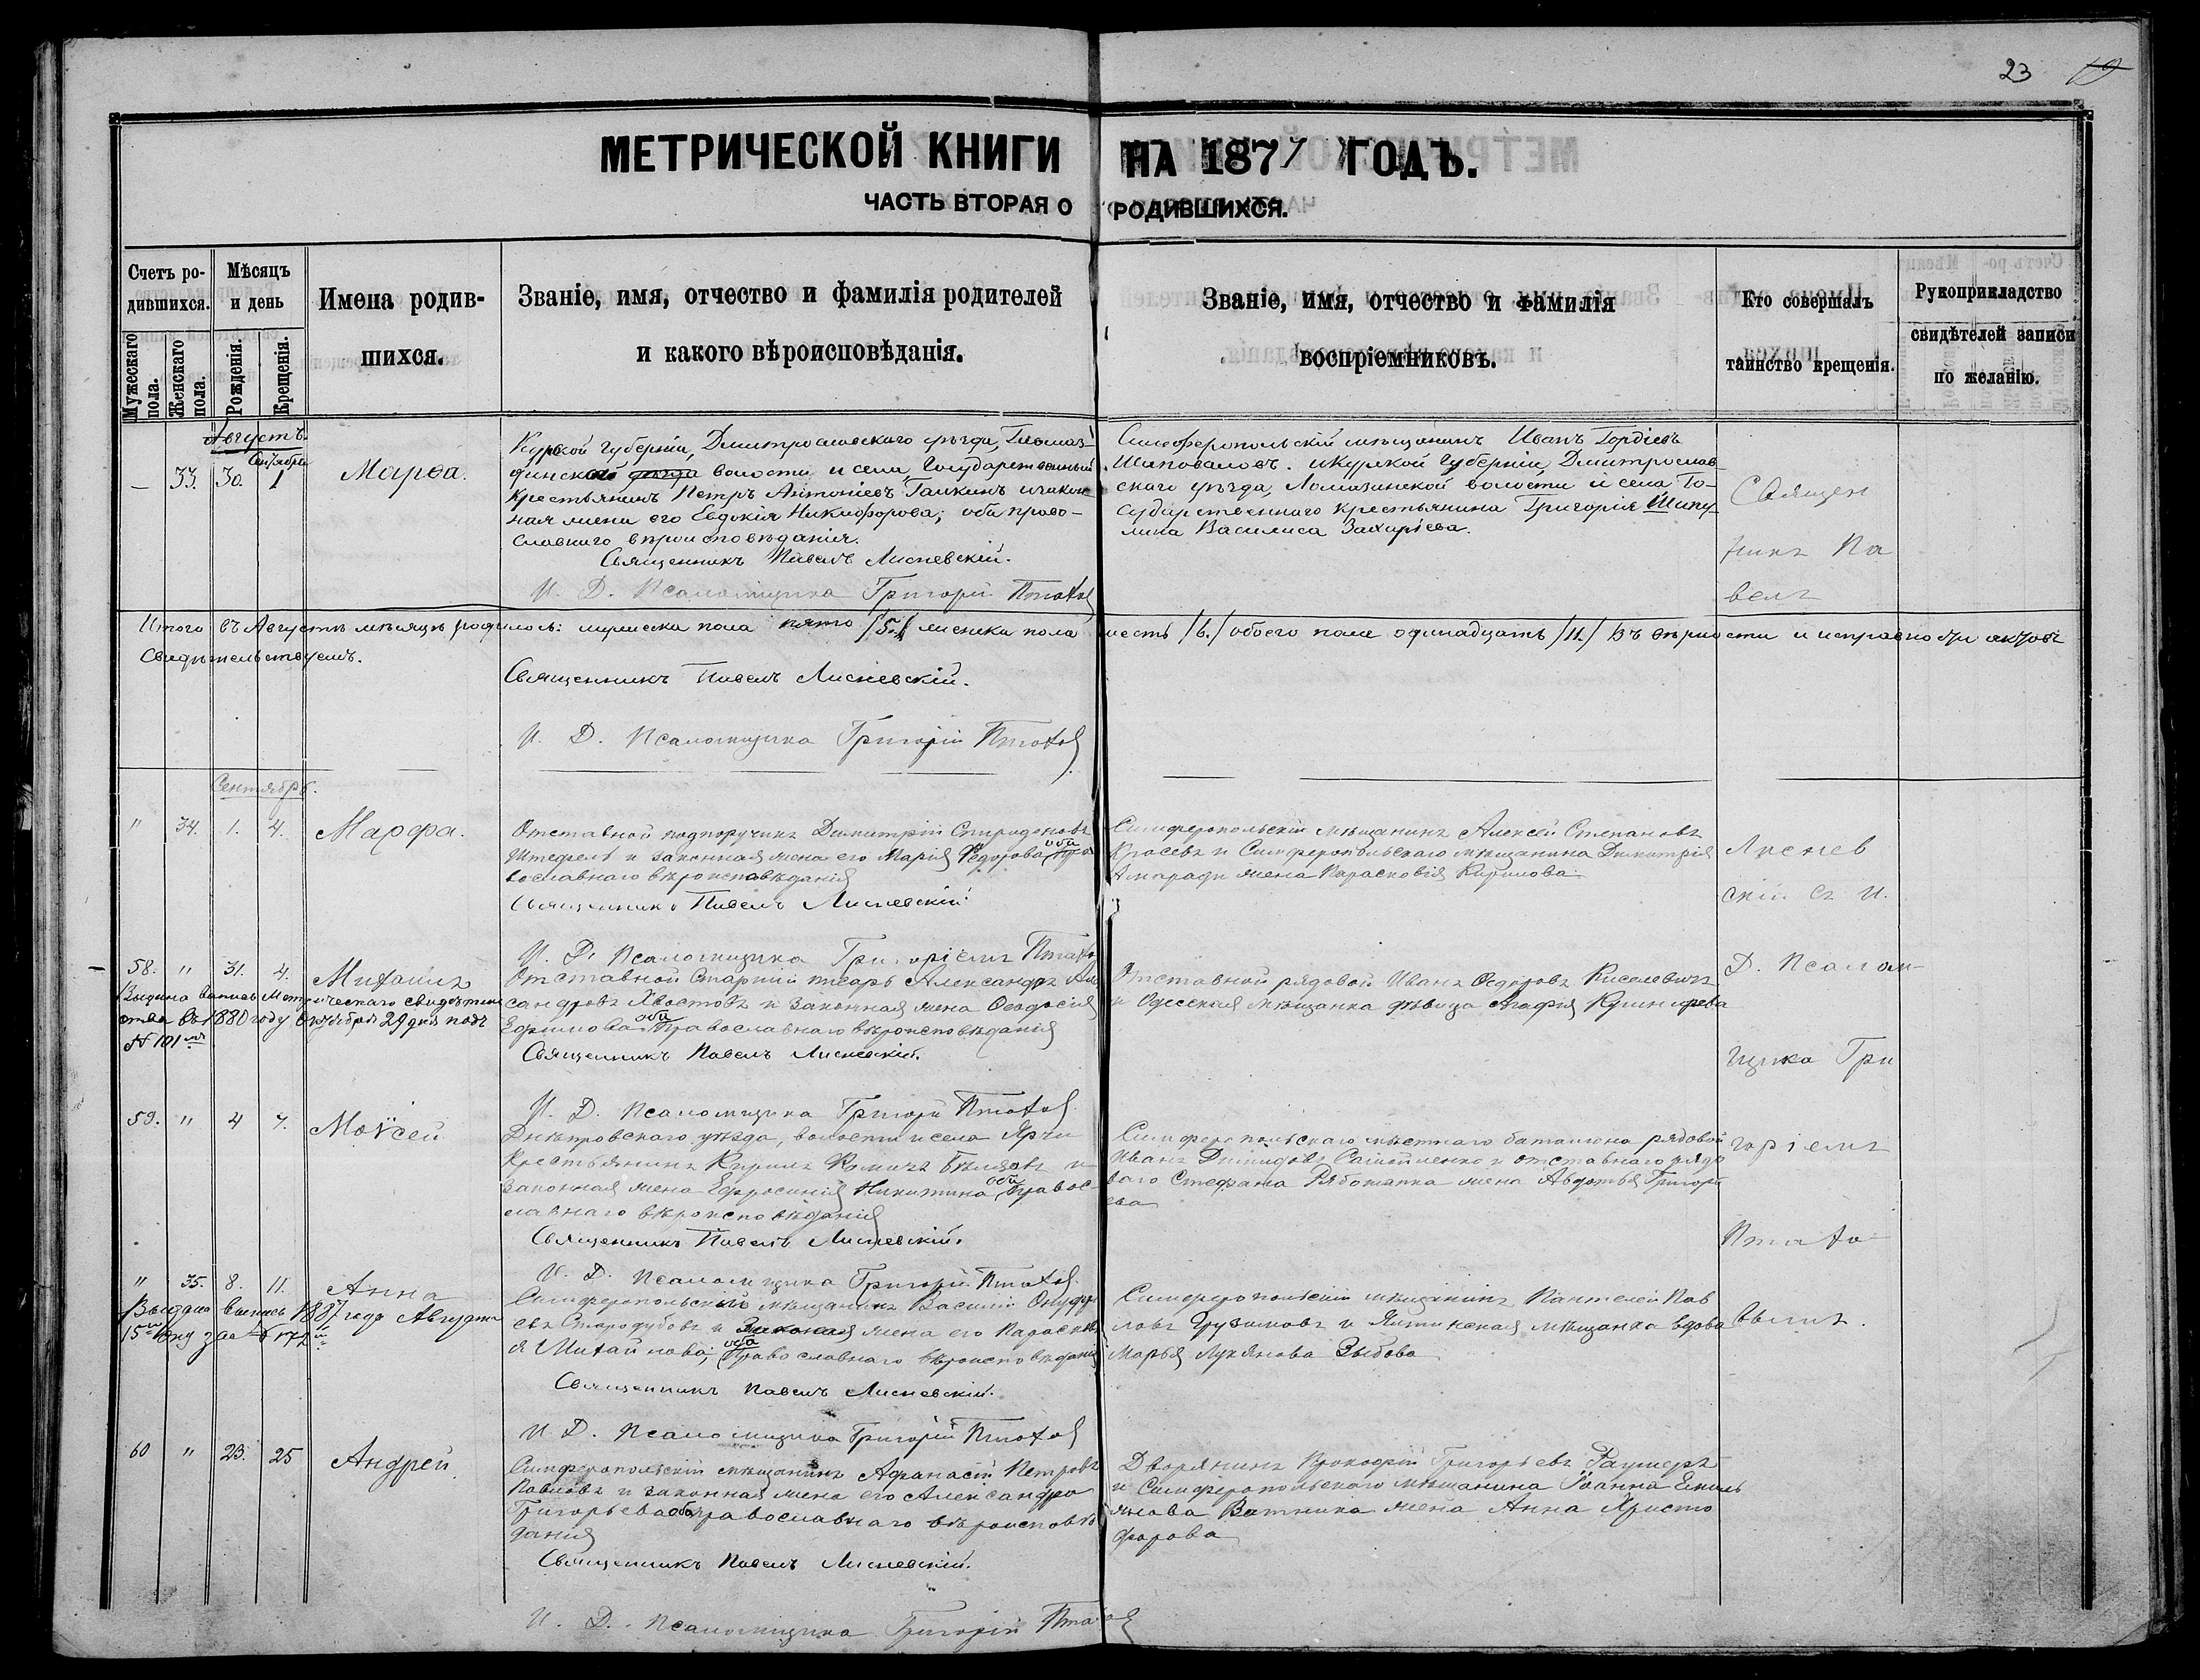 23 19
МЕТРИЧЕСКОЙ КНИГИ НА 1877 ГОДЪ.
ЧАСТЬ ВТОРАЯ О РОДИВШИХСЯ.
Счетъ родившихся.
Мужескаго пола.
Женскаго пола.
Мѣсяцъ и день
Рожденія.
Крещенія.
Имена родившихся.
Званіе, имя, отчество и фамилія родителей
и какого вѣроисповѣданія.
Званіе, имя, отчество и фамилія
воспріемниковъ.
Кто совершалъ
таинство крещенія.
Рукоприкладство
свидѣтелей записи
по желанію.
Августъ.
Сентября
— 33. 30. 1 Марѳа.
Курской губерніи, Дмитрославскаго уѣзда,
волости и села Государственный
крестьянинъ Петръ Антоніевъ Галкинъ и закон
ная жена его Евдокія Никифорова; оба право-
славнаго вѣроисповѣданія.
Священникъ Павелъ Лисневскій.
И. Д. Псаломщика Григорій Птахов
Симферопольскій мѣщанинъ Иванъ Гордіевъ
Шаповаловъ. и Курской губерніи, Дмитрослав-
скаго уѣзда, Ломазинской волости и села Го-
сударственнаго крестьянина Григорія Шапу
лина Василиса Захаріева.
Итого въ Августѣ мѣсяцѣ родилось: мужеска пола пято /5./ женска пола шесть /6./ обоего пола одинадцать /11./ Въ вѣрности и исправности актовъ
Свидѣтельствуемъ.
Священникъ Павелъ Лисневскій.
И. Д. Псаломщика Григорій Птахов
Сентябрь.
" 34. 1. 4. Марфа.
Отставной подпоручикъ Димитрій Спиридоновъ
Штефель и законная жена его Марія Федорова оба пра
вославнаго вѣроисповѣданія
Священникъ Павелъ Лисневскій
И. Д. Псаломщика Григоріемъ Птахов
Симферопольскій мѣщанинъ Алексей Степановъ
и Симферопольскаго мѣщанина Димитрія
Амаради жена Парасковія Кирилова
58. " 31. 4. Михаилъ
Выдана запись Метрическаго свидѣтель
ства въ 1880 году Октября 29 дня подъ
№ 101мъ
Отставной Старшій писарь Александръ Алек
сандровъ Хвостовъ и законная жена Феодосія
Ефимова оба Православнаго вѣроисповѣданія
Священникъ Павелъ Лисневскій.
И. Д. Псаломщика Григорій Птахов
Отставной рядовой Иванъ Федоровъ Киселевичъ
и Одесская мѣщанка дѣвица Агафія
59. " 4 7. Моѵсей
Днѣпровскаго уѣзда, волости и села
Крестьянинъ Кирилъ и
законная жена Ефросинія Никитина оба Правос-
лавнаго вѣроисповѣданія
Священникъ Павелъ Лисневскій.
И. Д. Псаломщика Григорій Птахов
Симферопольскаго мѣстнаго баталіона рядовой
Иванъ Демидовъ и отставнаго рядо
ваго Стефана жена Авдотья Григорь
ева
" 35. 8. 11. Анна
Выдана выпись 1887 года Августа
15го
Симферопольскій мѣщанинъ Василій Онуфрі
евъ Стародубовъ и Законная жена его Параскев
я Михайлова; оба Православнаго вѣроисповѣданія
Священникъ Павелъ Лисневскій.
И. Д. Псаломщика Григорій Птахов
Симферопольскій мѣщанинъ Пантелей Пав
ловъ и Ялтинская мѣщанка вдова
Марья Лукянова Зыбова
60 " 23. 25 Андрей
Симферопольскій мѣщанинъ Афанасій Петровъ
Павловъ и законная жена его Александра
Григорьева оба православнаго вѣроисповѣ
данія
Священникъ Павелъ Лисневскій.
И. Д. Псаломщика Григорій Птахов
Дворянинъ Прокофій Григорьевъ
и Симферопольскаго мѣщанина Іоанна Емель
янова Ватника жена Анна Христо
форова
Священ
никъ Па
велъ
Лиснев
скій съ И.
Д. Псалом-
щика Гри
горіемъ
Птахо-
вымъ.